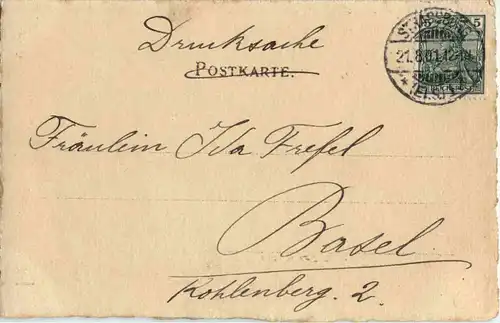 Drucksache
POSTKARTE.
5
STRASSBURG
21.8.01.12-1N.
*(ELS.)
Fräulein Ida Frefel
Basel
Kohlenberg. 2.